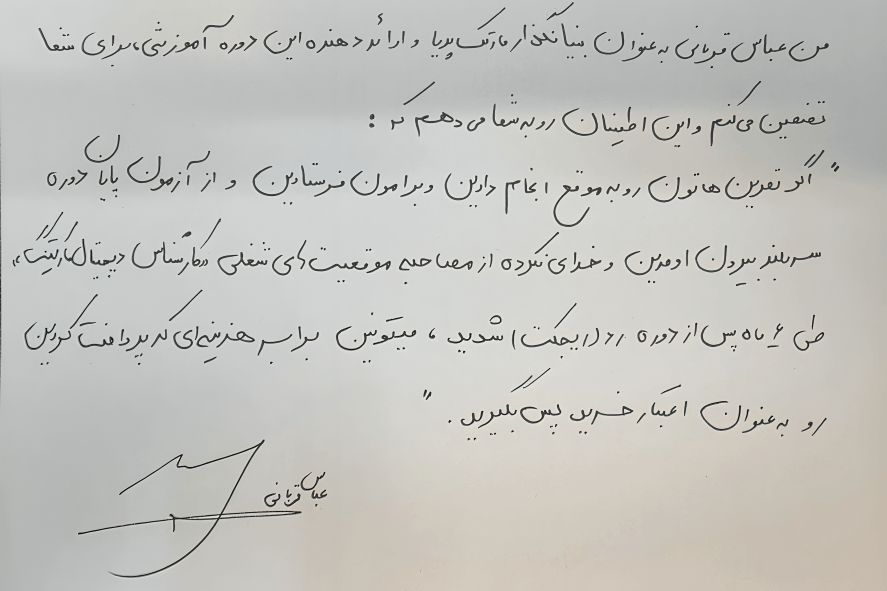 من عباس قربانی به عنوان بنیانگذار مارتک پدیا و ارائه دهنده این دوره آموزشی، برای شما
تضمین می‌کنم و این اطمینان رو به شما می‌دهم که :
"اگر تمرین هاتون رو به موقع انجام دادین و برامون فرستادین و از آزمون پایان دوره
سربلند بیرون اومدین و خدای نکرده از مصاحبه موقعیت‌های شغلی «کارشناس دیجیتال مارکتینگ»
طی ۶ ماه پس از دوره رد (ریجکت) شدید ، میتونین برابر هزینه‌ای که پرداخت کردین
رو به عنوان اعتبار خرید پس بگیرید. "
عباس قربانی